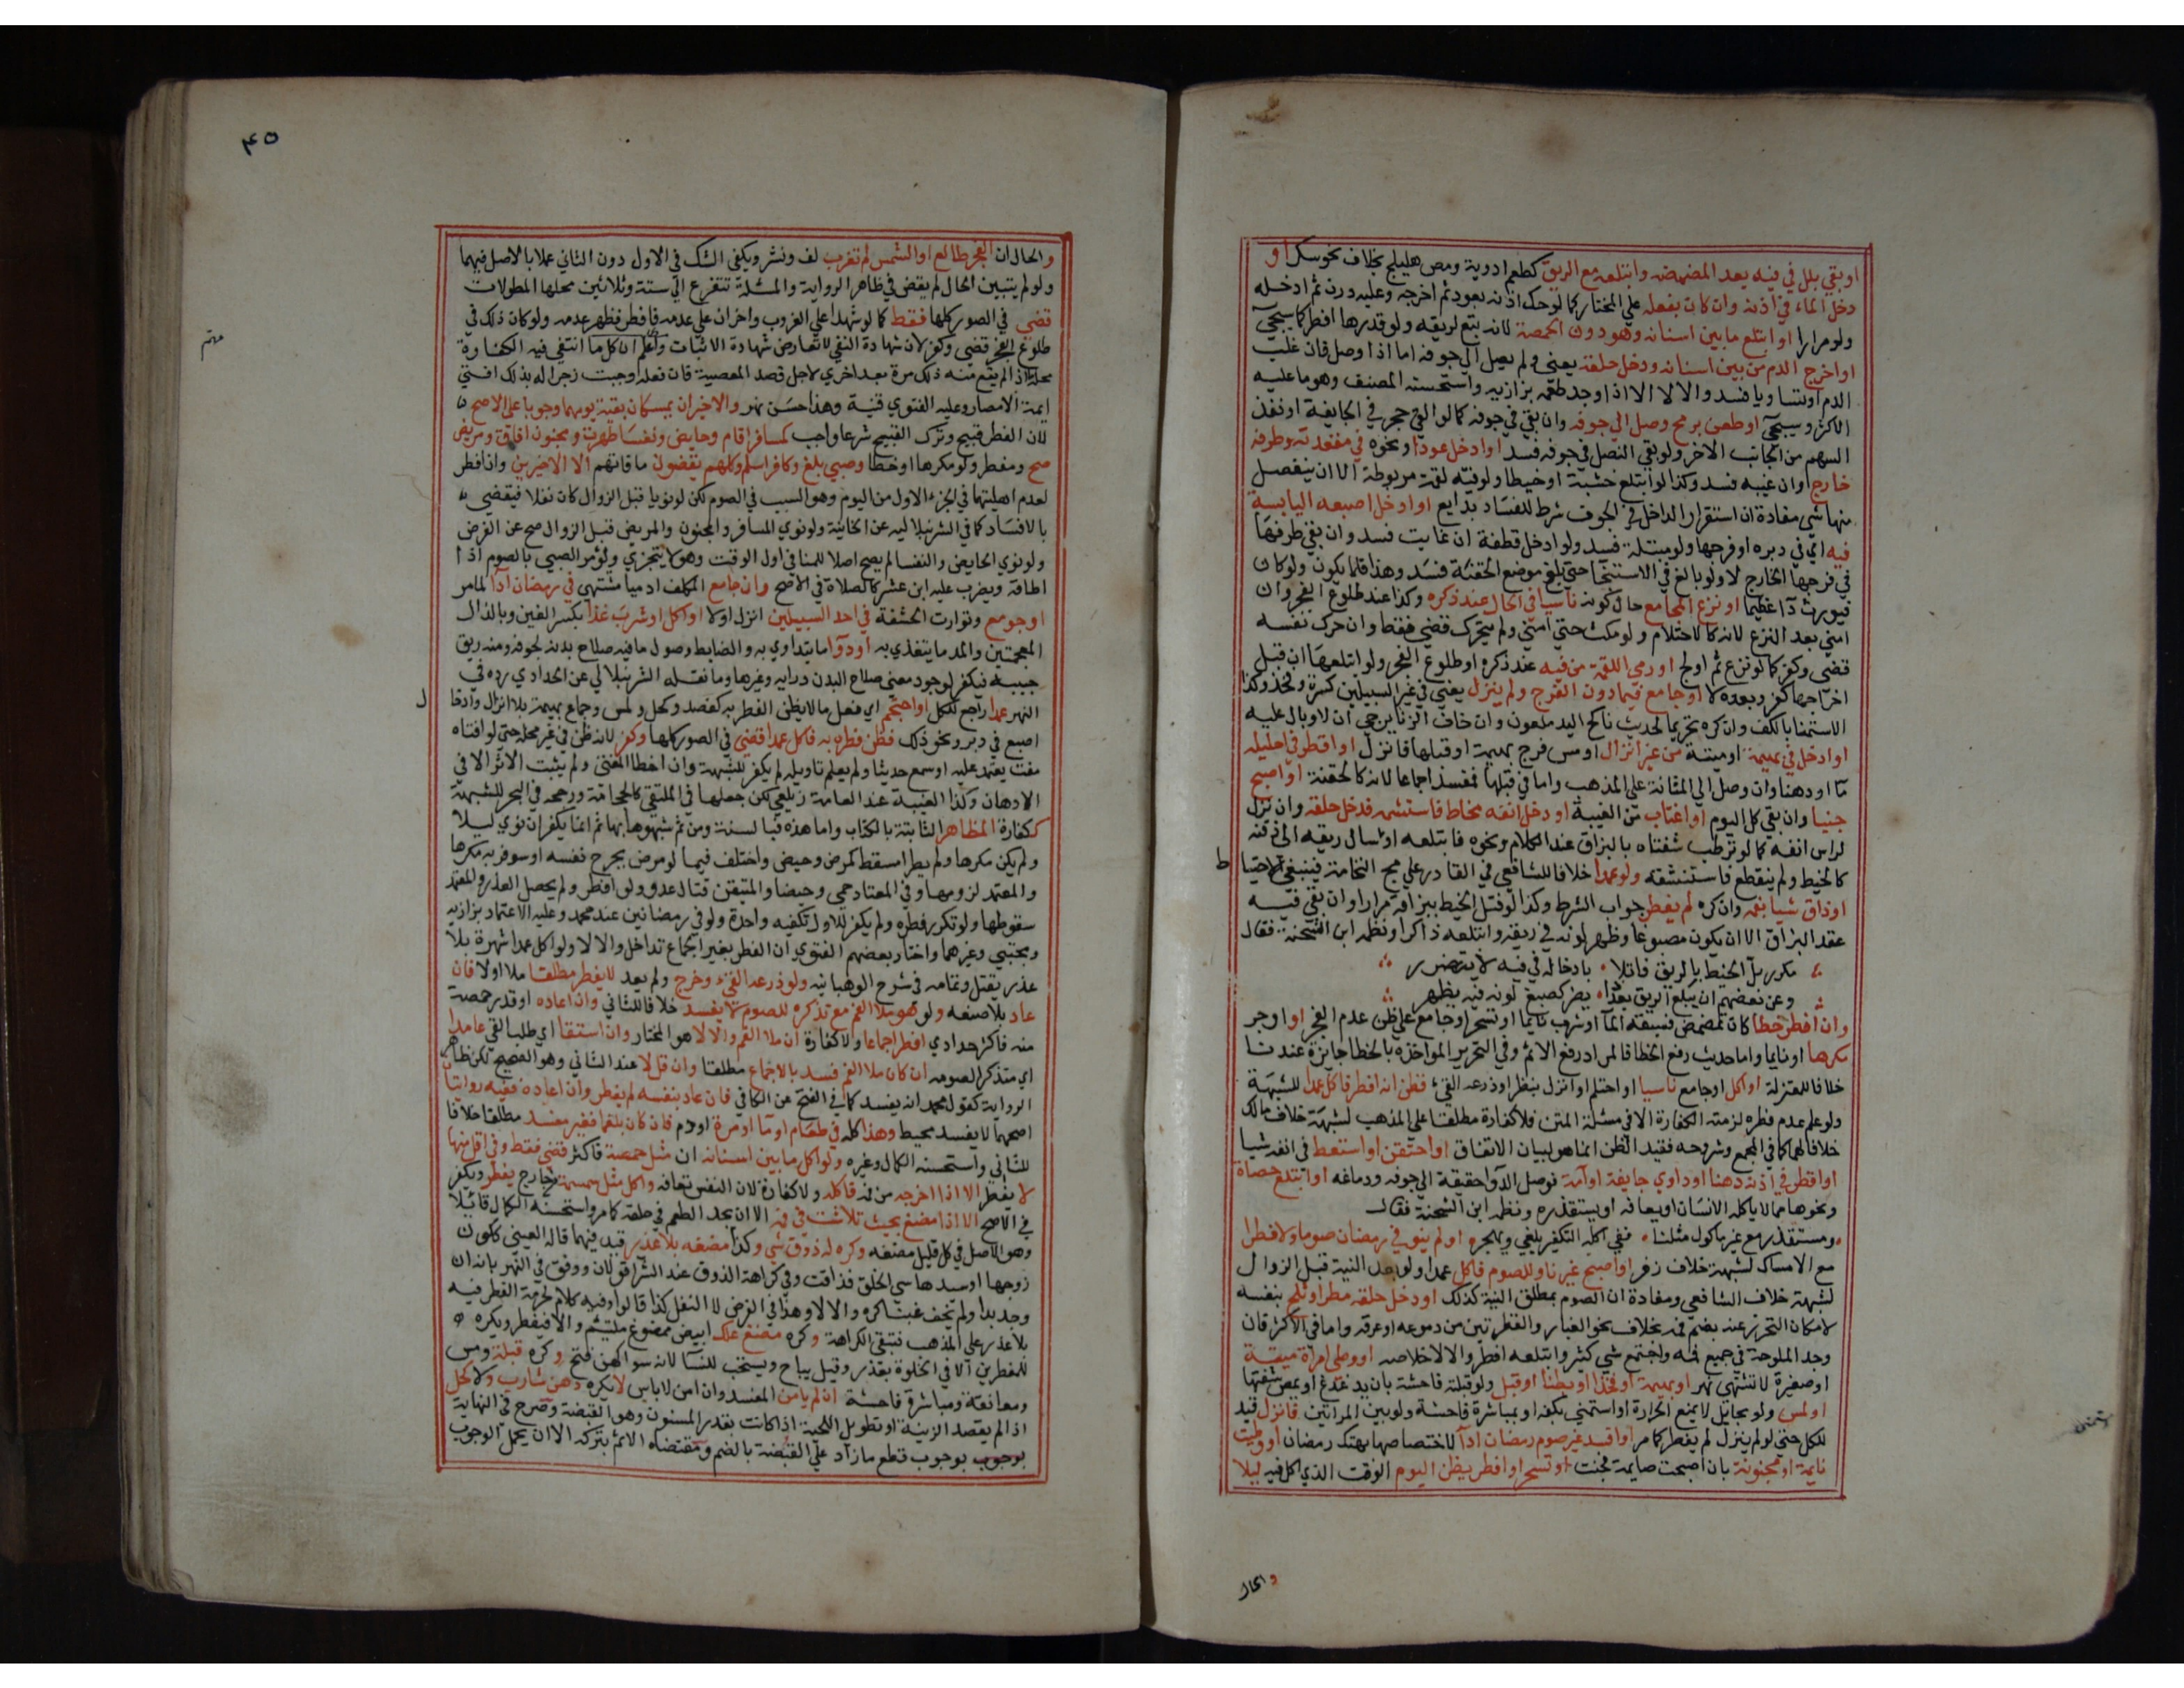 او بقي بلل في فيه بعد المضمضه وابتلعه مع الريق كطعم ادوية ومص هليلج بخلاف نحو سكر او
دخل الماء في اذنه وان كان بفعله على المختار كما لو حك اذنه بعود ثم اخرجه وعليه درن ثم ادخله
ولو مرارا او ابتلع ما بين اسنانه وهو دون الحمصة لانه تبع لريقه ولو قدرها افطر كما سيجيئ
او اخرج الدم من بين اسنانه ودخل حلقه يعني ولم يصل الي جوفه اما اذا وصل فان غلب
الدم او تساويا فسد والا لا الا اذا وجد طعمه بزازيه واستحسنه المصنف وهو ما عليه
الاكثر وسيجئ او طعن برمح وصل الي جوفه وان بقي في جوفه كما لو القي حجر في الجايفة او نفذ
السهم من الجانب الاخر ولو بقي النصل في جوفه فسد او ادخل عودا ونحوه في مقعدته وطرفه
خارج وان غيبه فسد وكذا لو ابتلع خشبة او خيطا ولو فيه لقمة مربوطة الا ان ينفصل
منها شي مفادة ان استقرار الداخل في الجوف شرط للفساد بدايع او ادخل اصبعه اليابسة
فيه اي في دبره او فرجها ولو مبتلة فسد ولو ادخل قطنة ان غابت فسد وان بقي طرفها
في فرجها الخارج لا ولو بالغ في الاستنجا حتي بلغ موضع الحقنة فسد وهذا قلما يكون ولو كان
فيورث دآ عظيما او نزع المجامع حال كونه ناسيا في الحال عند ذكره وكذا عند طلوع الفجر وان
امني بعد النزع لانه كالاحتلام ولو مكث حتي امني ولم يتحرك قضي فقط وان حرك نفسه
قضي وكفر كما لو نزع ثم اولج او رمي اللقمة من فيه عند ذكره او طلوع الفجر ولو ابتلعها ان قبل
اخراجها كفر وبعده لا او جامع فيما دون الفرج ولم ينزل يعني في غير السبيلين كسرة وفخذ وكذا
الاستمنا بالكف وان كره تحريما لحديث ناكح اليد ملعون وان خاف الزنا يرجي ان لا وبال عليه
او ادخل في بهيمة او ميتة من غير انزال او مس فرج بهيمة او قبلها فانزل او اقطر في احليله
مآ او دهنا وان وصل الي المثانة على المذهب واما في قبلها فمفسد اجماعا لانه كالحقنة او اصبح
جنبا وان بقي كل اليوم او اغتاب من الغيبة او دخل انفه مخاط فاستنشقه فدخل حلقه وان نزل
لراس انفه كما لو ترطب شفتاه بالبزاق عند الكلام ونحوه فابتلعه او سال ريقه الى ذقنه
كالخيط ولم ينقطع فاستنشقه ولو عمدا خلافا للشافعي في القادر علي مج النخامة فينبغي الاحتيا
او ذاق شيا بفمه وان كره لم يفطر جواب الشرط وكذا لو فتل الخيط ببزاقه مرارا وان بقي فيه
عقد البزاق الا ان يكون مصبوغا وظهر لونه في ريقه وابتلعه ذاكرا ونظمه ابن الشحنة فقال
مكرر بل الخيط بالريق فاتلا بادخاله في فيه لا يتضرر
وعن بعضهم ان يبلع الريق بعد ذا يضر كصبغ لونه فيه يظهر
وان افطر خطا كان تمضمض فسبقه المآ او شرب نايما او تسحر او جامع علي ظن عدم الفجر او اوجر
مكرها او نايما واما حديث رفع الخطا فالمراد رفع الاثم وفي التحرير المواخذه بالخطا جايزة عندنا
خلافا للمعتزلة او اكل او جامع ناسيا او احتلم او انزل بنظر او ذرعه القيئ فظن انه افطر فاكل عمدا للشبهة
ولو علم عدم فطره لزمته الكفارة الا في مسئلة المتن فلا كفارة مطلقا علي المذهب لشبهة خلاف مالك
خلافا لهما كما في المجمع وشروحه فقيد الظن انما هو لبيان الاتفاق او احتقن او استعط في انفه شيا
او اقطر في اذنه دهنا او داوي جايفة او آمة فوصل الدوآ حقيقة الي جوفه ودماغه او ابتلع حصاة
ونحوها مما لا ياكله الانسان او يعافه او يستقذره ونظمه ابن الشحنة فقال
ومستقذر مع غير ماكول مثلنا ففي اكله التكفير يلغي ويهجر او لم ينو في رمضان صوما ولا فطرا
مع الامساك لشبهة خلاف زفر او اصبح غير ناو للصوم فاكل عمدا ولو بعد النية قبل الزوال
لشبهة خلاف الشافعي ومفادة ان الصوم بمطلق النية كذلك او دخل حلقه مطر او ثلج بنفسه
لامكان التحرز عنه بضم فمه بخلاف نحو الغبار والقطرتين من دموعه او عرقه واما في الاكثر فان
وجد الملوحة في جميع فمه واجتمع شي كثير وابتلعه افطر والا لا خلاصه او وطي امراة ميتة
او صغيرة لا تشتهي نهر او بهيمة او فخذا او بطنا او قبل ولو قبلة فاحشة بان يدغدغ او يمص شفتها
او لمس ولو بحايل لا يمنع الحرارة او استمني بكفه او بمباشرة فاحشة ولو بين المراتين فانزل قيد
للكل حتي لو لم ينزل لم يفطر كما مر او افسد غير صوم رمضان ادآ لاختصاصها بهتك رمضان او وطيت
نايمة او مجنونة بان اصبحت صايمة فجنت او تسحر او افطر يظن اليوم الوقت الذي اكل فيه ليلا
والحال
٤٥
والحال ان الفجر طالع او الشمس لم تغرب لف ونشر ويكفي الشك في الاول دون الثاني عملا بالاصل فيهما
ولو لم يتبين الحال لم يقض في ظاهر الرواية والمسئلة تتفرع الي ستة وثلاثين محلها المطولات
قضي في الصور كلها فقط كما لو شهدا علي الغروب واخران علي عدمه فافطر فظهر عدمه ولو كان ذلك في
طلوع الفجر قضي وكفر لان شهادة النفي لا تعارض شهادة الاثبات واعلم ان كل ما انتفي فيه الكفارة
محله اذا لم يقع منه ذلك مرة بعد اخري لاجل قصد المعصية فان فعله وجبت زجرا له بذلك افتي
ايمة الامصار وعليه الفتوي قنية وهذا حسن نهر والاخيران يمسكان بقية يومهما وجوبا على الاصح
لان الفطر قبيح وترك القبيح شرعا واجب كمسافر اقام وحايض ونفسا طهرتا ومجنون افاق ومريض
صح ومفطر ولو مكرها او خطا وصبي بلغ وكافر اسلم وكلهم يقضون ما فاتهم الا الاخيرين وان افطر
لعدم اهليتهما في الجزء الاول من اليوم وهو السبب في الصوم لكن لو نويا قبل الزوال كان نفلا فيقضي
بالافساد كما في الشرنبلاليه عن الخانية ولو نوي المسافر والمجنون والمريض قبل الزوال صح عن الفرض
ولو نوي الحايض والنفسا لم يصح اصلا للمنافي اول الوقت وهو لا يتجزي ويؤمر الصبي بالصوم اذا
اطاقه ويضرب عليه ابن عشر كالصلاة في الاصح وان جامع المكلف ادميا مشتهي في رمضان ادآ لما مر
او جومع وتوارت الحشفة في احد السبيلين انزل او لا او اكل او شرب غذا بكسر الغين وبالذال
المعجمتين والمد ما يتغذي به او دوآ ما يتداوي به والضابط وصول ما فيه صلاح بدنه لجوفه ومنه ريق
حبيبه فيكفر لوجود معني صلاح البدن درايه وغيرها وما نقله الشرنبلالي عن الحدادي رده في
النهر عمدا راجع للكل او احتجم اي فعل ما لا يظن الفطر به كفصد وكحل ولمس وجماع بهيمة بلا انزال وادخا
اصبع في دبر ونحو ذلك فظن فطره به فاكل عمدا قضي في الصور كلها وكفر لانه ظن في غير محله حتي لو افتاه
مفت يعتمد عليه او سمع حديثا ولم يعلم تاويله لم يكفر للشبهة وان اخطا المفتي ولم يثبت الاثر الا في
الادهان وكذا الغيبة عند العامة زيلعي لكن جعلها في الملتقي كالحجامة ورجحه في البحر للشبهة
ككفارة المظاهر الثابتة بالكتاب واما هذه فبالسنة ومن ثم شبهوها بها ثم انما يكفر ان نوي ليلا
ولم يكن مكرها ولم يطرا مسقط كمرض وحيض واختلف فيما لو مرض بجرح نفسه او سوفر به مكرها
والمعتمد لزومها وفي المعتاد حمي وحيضا والمتيقن قتال عدو ولو افطر ولم يحصل العذر والمعتمد
سقوطها ولو تكرر فطره ولم يكفر للاول تكفيه واحدة ولو في رمضانين عند محمد وعليه الاعتماد بزازيه
ومجتبي وغيرهما واختار بعضهم الفتوي ان الفطر بغير الجماع تداخل والا لا ولو اكل عمدا شهرة بلا
عذر يقتل وتمامه في شرح الوهبانيه ولو ذرعه القيء وخرج ولم يعد لا يفطر مطلقا ملا او لا فان
عاد بلا صنعه ولو هو ملا الفم مع تذكره للصوم لا يفسد خلافا للثاني وان اعاده او قدر حمصة
منه فاكثر حدادي افطر اجماعا ولا كفارة ان ملا الفم والا لا هو المختار وان استقا اي طلب القي عامدا
اي متذكرا لصومه ان كان ملا الفم فسد بالاجماع مطلقا وان قل لا عند الثاني وهو الصحيح لكن ظاهر
الرواية كقول محمد انه يفسد كما في الفتح عن الكافي فان عاد بنفسه لم يفطر وان اعاده ففيه روايتان
اصحهما لا يفسد محيط وهذا كله في طعام او مآ او مرة او دم فان كان بلغما فغير مفسد مطلقا خلافا
للثاني واستحسنه الكمال وغيره ولو اكل ما بين اسنانه ان مثل حمصة فاكثر قضي فقط وفي اقل منها
لا يفطر الا اذا اخرجه من فمه فاكله ولا كفارة لان النفس تعافه واكل مثل سمسمة من خارج يفطر ويكفر
في الاصح الا اذا مضغ بحيث تلاشت في فمه الا ان يجد الطعم في حلقه كما مر واستحسنه الكمال قايلا
وهو الاصل في كل قليل مضغه وكره له ذوق شي وكذا مضغه بلا عذر قيد فيهما قاله العيني ككون
زوجها او سيدها سي الخلق فذاقت وفي كراهة الذوق عند الشرآ قولان ووفق في النهر بانه ان
وجد بدا ولم يخف غبنا كره والا لا وهذا في الفرض لا النفل كذا قالوا وفيه كلام لحرمة الفطر فيه
بلا عذر علي المذهب فتبقي الكراهة وكره مضغ علك ابيض ممضوغ ملتيم والا فيفطر ويكره
للمفطرين الا في الخلوة بعذر وقيل يباح ويستحب للنسآ لانه سواكهن فتح وكره قبلة ومس
ومعانقة ومباشرة فاحشة ان لم يامن المفسد وان امن لا باس لا يكره دهن شارب ولا كحل
اذا لم يقصد الزينة او تطويل اللحية اذا كانت بقدر المسنون وهو القبضة وصرح في النهاية
بوجوب بوجوب قطع ما زاد علي القبضة بالضم ومقتضاه الاثم بتركه الا ان يحمل الوجوب